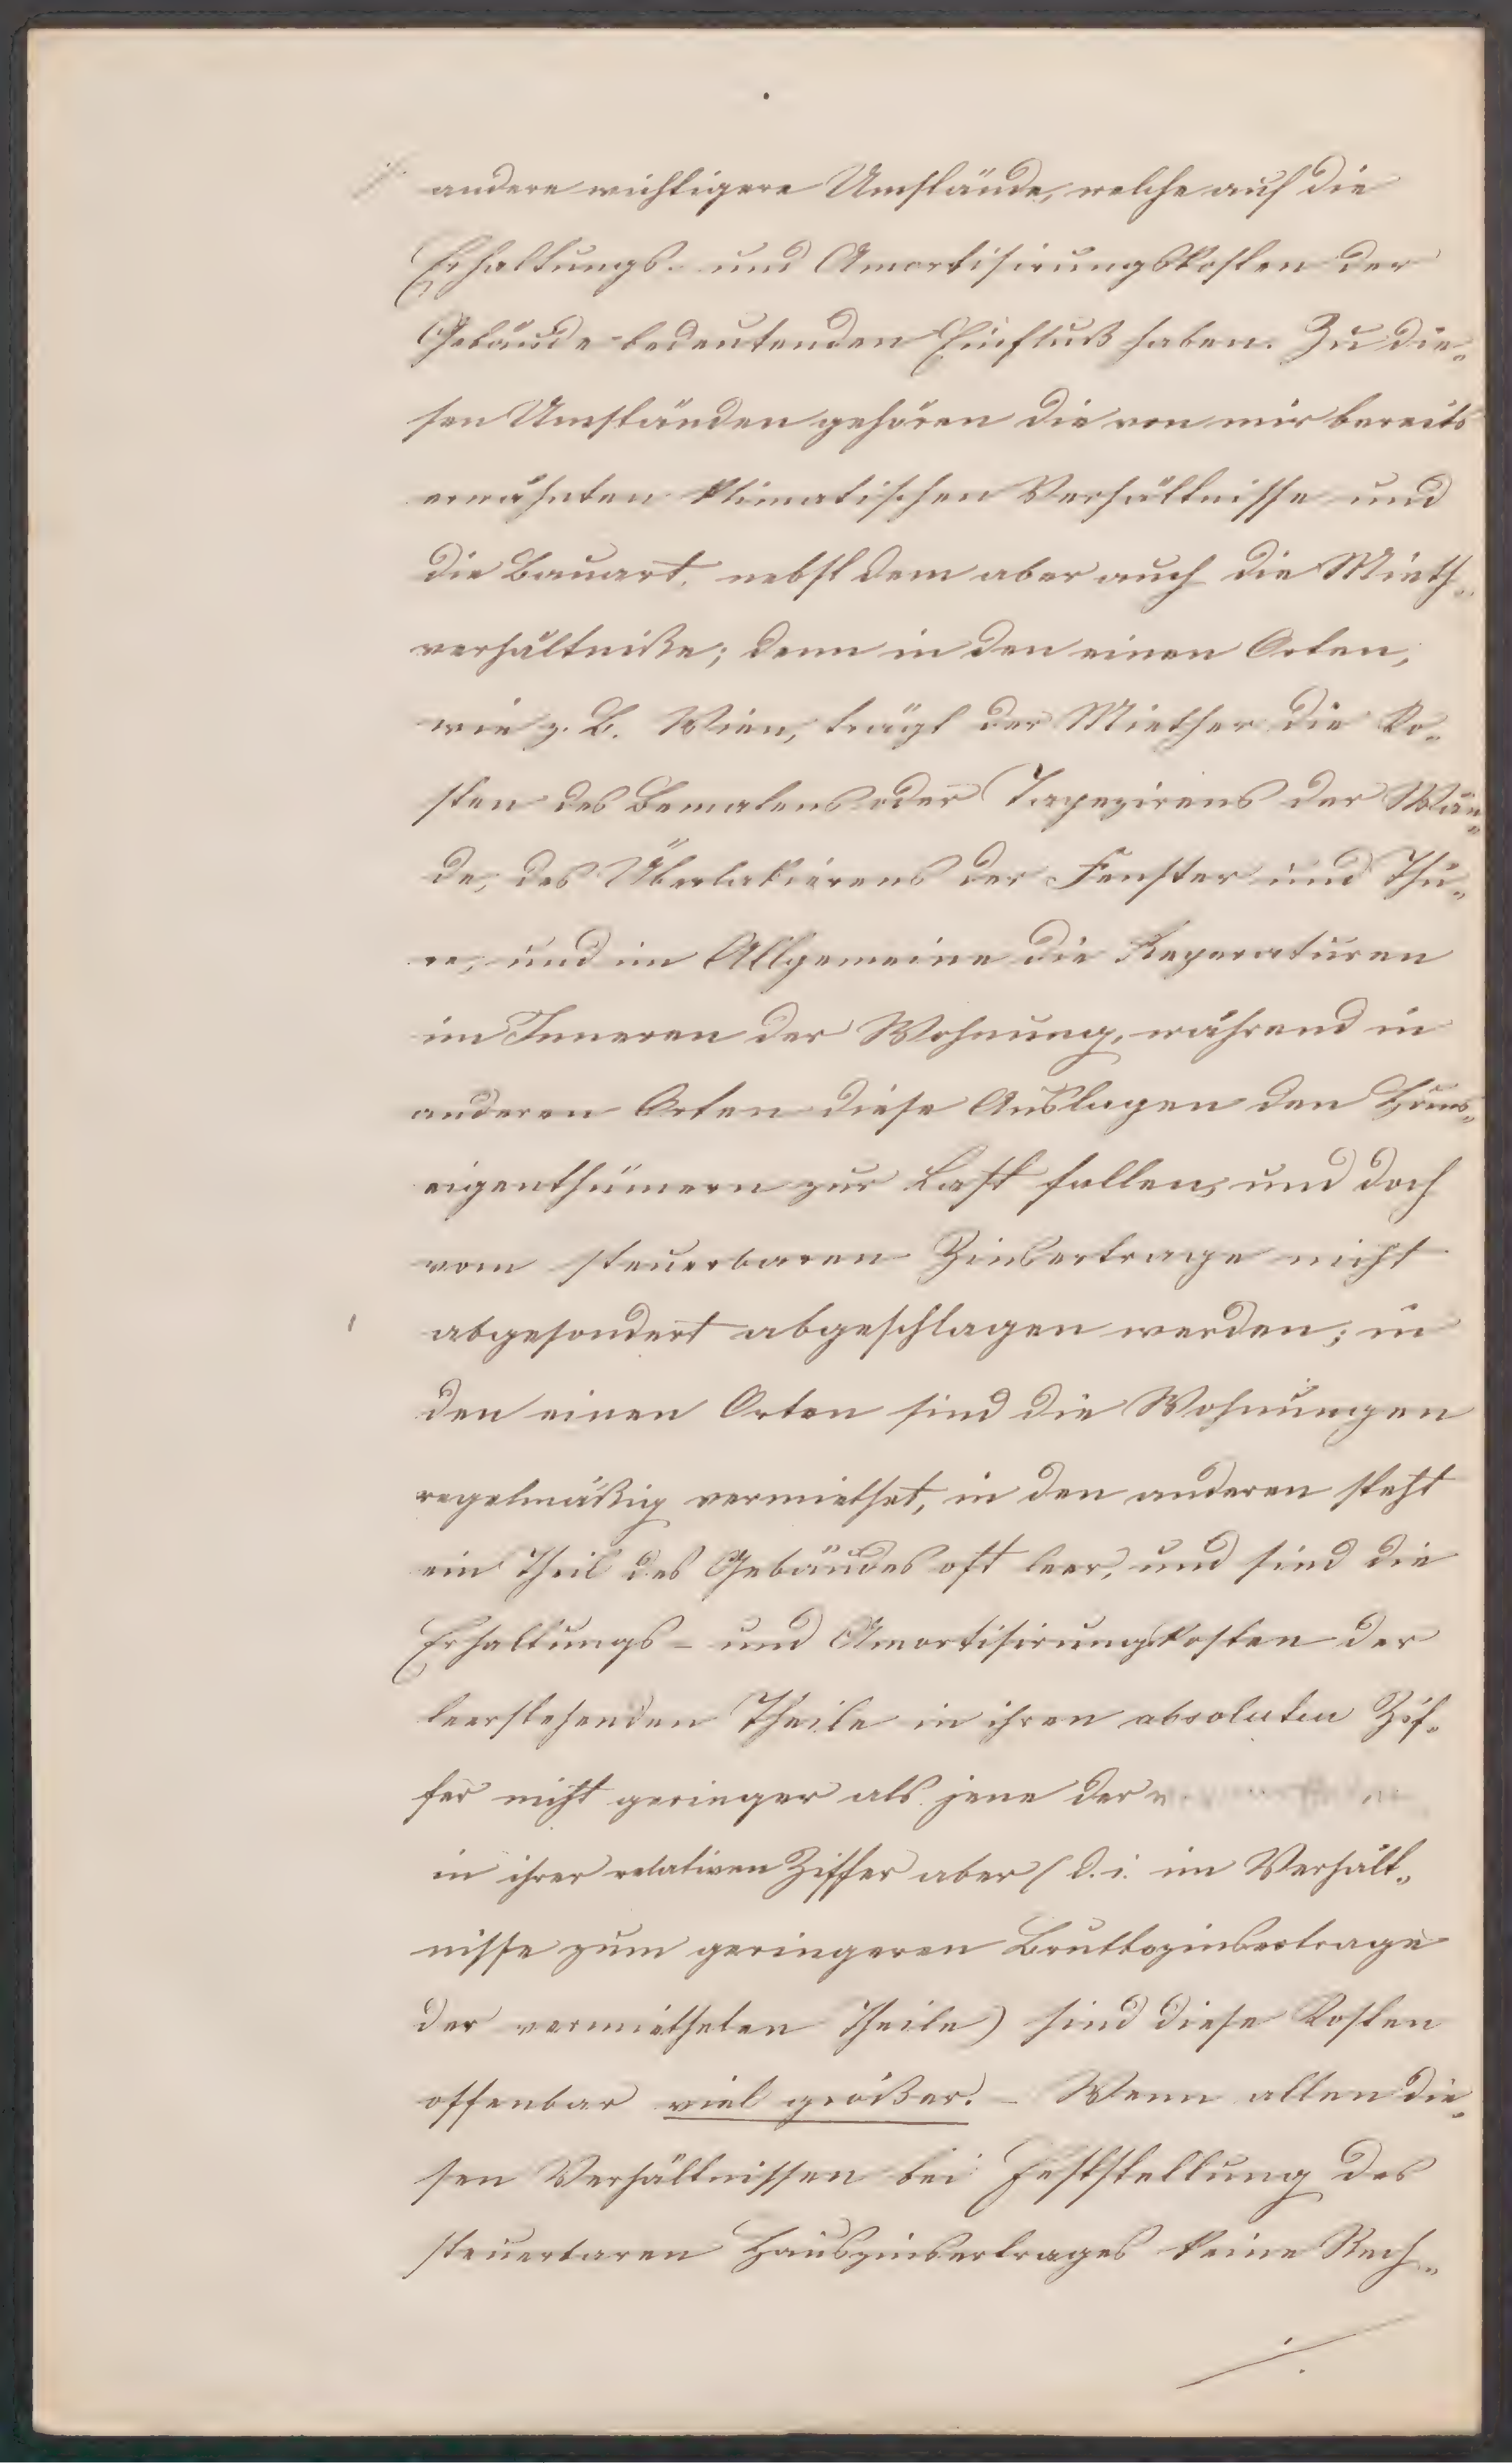 andere wichtigere Umstände, welche auf die
Erhaltungs- und Amortisirungskosten der
Gebäude bedeutenden Einfluß haben. Zu die„
sen Umständen gehören die von mir bereits
erwähnten klimatischen Verhältnisse und
die Bauart, nebst dem aber auch die Mieth„
verhältniße; denn in den einen Orten,
wie z. B. Wien, trägt der Miether die Ko„
sten des Bemalens oder Tapezirens der Wän„
de, des Überlakierens der Fenster und Thü„
re, und im Allgemeine die Reparaturen
im Inneren der Wohnung, während in
anderen Orten diese Auslagen den Haus„
eigenthümern zur Last fallen, und doch
vom steuerbaren Zinsertrage nicht
abgesondert abgeschlagen werden; in
den einen Orten sind die Wohnungen
regelmäßig vermiethet, in den anderen steht
ein Theil des Gebäudes oft leer, und sind die
Erhaltungs- und Amortisirungskosten der
leerstehenden Theile in ihren absoluten Zif„
fer nicht geringer als jene der
in ihrer relativen Ziffer aber (d. i. im Verhält„
nisse zum geringeren Bruttozinsertrage
der vermietheten Theile) sind diese Kosten
offenbar viel größer. – Wenn allen die„
sen Verhältnissen bei Feststellung des
steuerbaren Hauszinsertrages keine Rech„